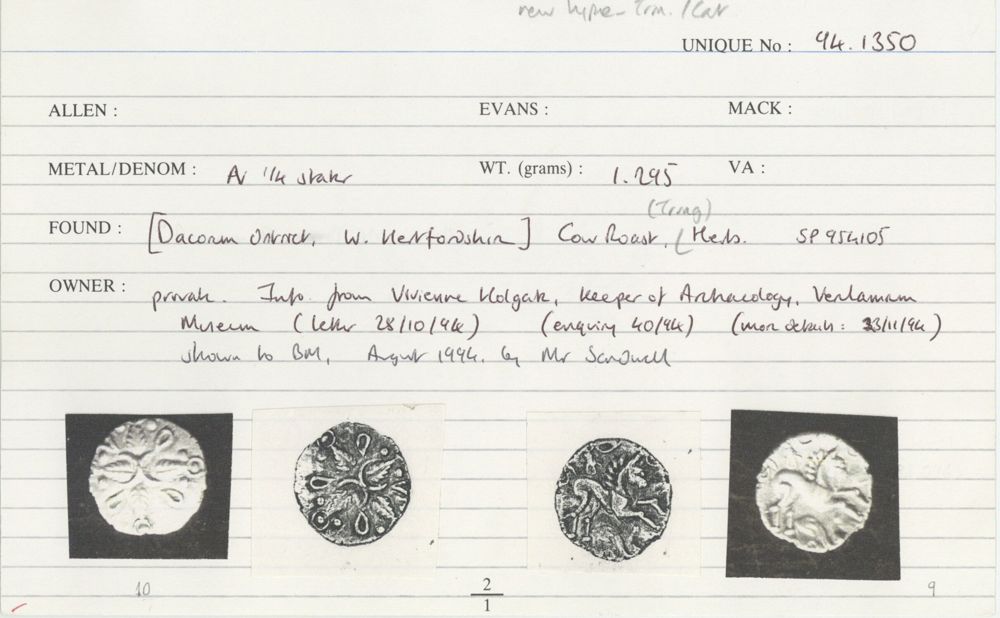 new type - Trn. / Cat
UNIQUE No : 94.1350
ALLEN : EVANS : MACK :
METAL/DENOM : AV 1/4 stater WT. (grams) : 1.295 VA :
(Tring)
FOUND : [Dacorum District, W. Hertfordshire] Cow Roast, Herts. SP 954105
OWNER : private. Info. from Vivienne Holgate, keeper of Archaeology, Verulamium
Museum (letter 28/10/94) (enquiry 40/94) (more details: 23/11/94)
shown to BM, August 1994, by Mr
10 2 9
1